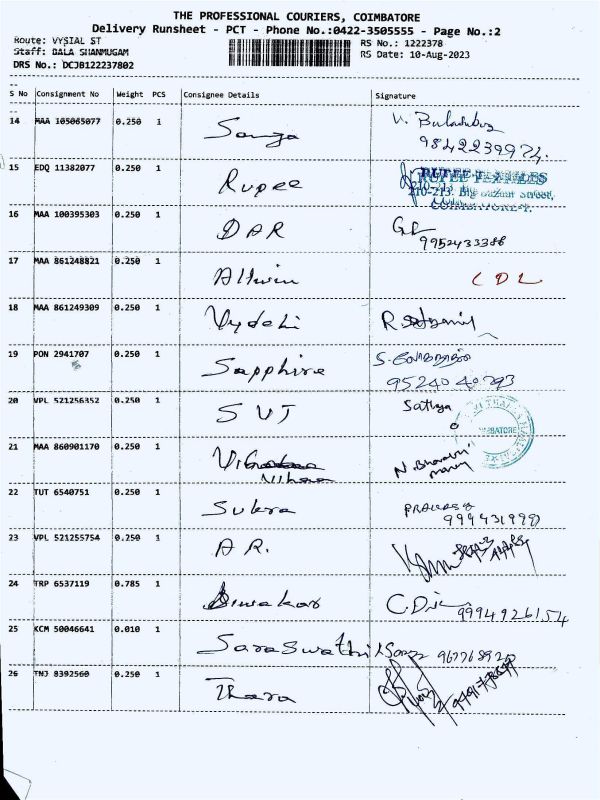 THE PROFESSIONAL COURIERS, COIMBATORE
Delivery Runsheet - PCT - Phone No.:0422-3505555 - Page No.:2
Route: VYSIAL ST RS No.: 1222378
Staff: BALA SHANMUGAM RS Date: 10-Aug-2023
DRS No.: DCJB122237802
S No Consignment No Weight PCS Consignee Details Signature
14 MAA 105065077 0.250 1
9842239974.
15 EDQ 11382077 0.250 1 Rupee RUPEE TEXTILES
210-213, Big Bazaar Street,
COIMBATORE-1.
16 MAA 100395303 0.250 1 DAR
9952433386
17 MAA 861248821 0.250 1 CDL
18 MAA 861249309 0.250 1 Vydehi
19 PON 2941707 0.250 1 Sapphire
95240 40793
20 VPL 521256352 0.250 1 SVT Sathya
21 MAA 860901170 0.250 1
22 TUT 6540751 0.250 1 Sukra
23 VPL 521255754 0.250 1 A R.
24 TRP 6537119 0.785 1 Diwakar
9994926154
25 KCM 50046641 0.010 1 Saraswathi
26 TNJ 8392560 0.250 1 Thara